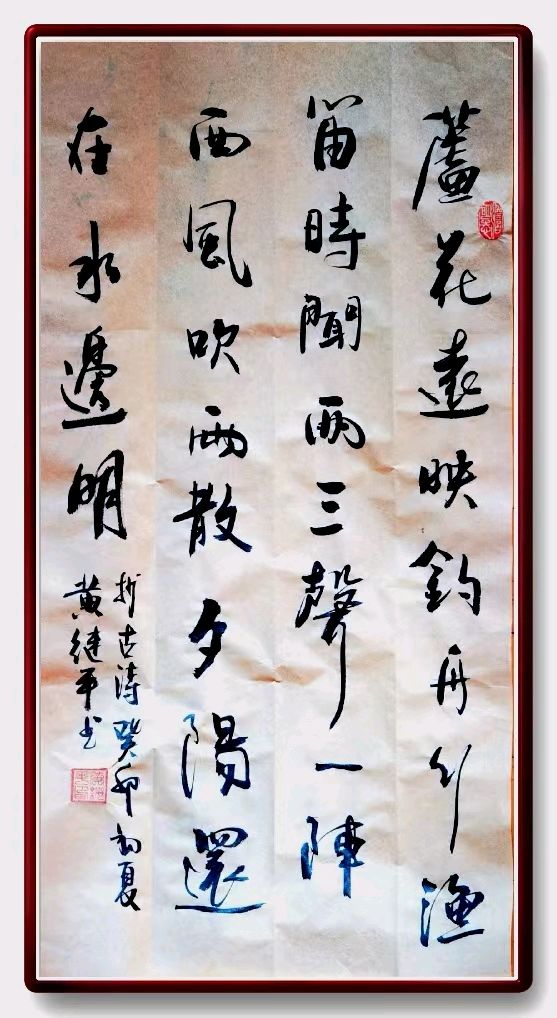 蘆花遠映釣舟行漁
笛時聞兩三聲一陣
西風吹雨散夕陽還
在水邊明
抄古詩癸卯初夏
黄继平书